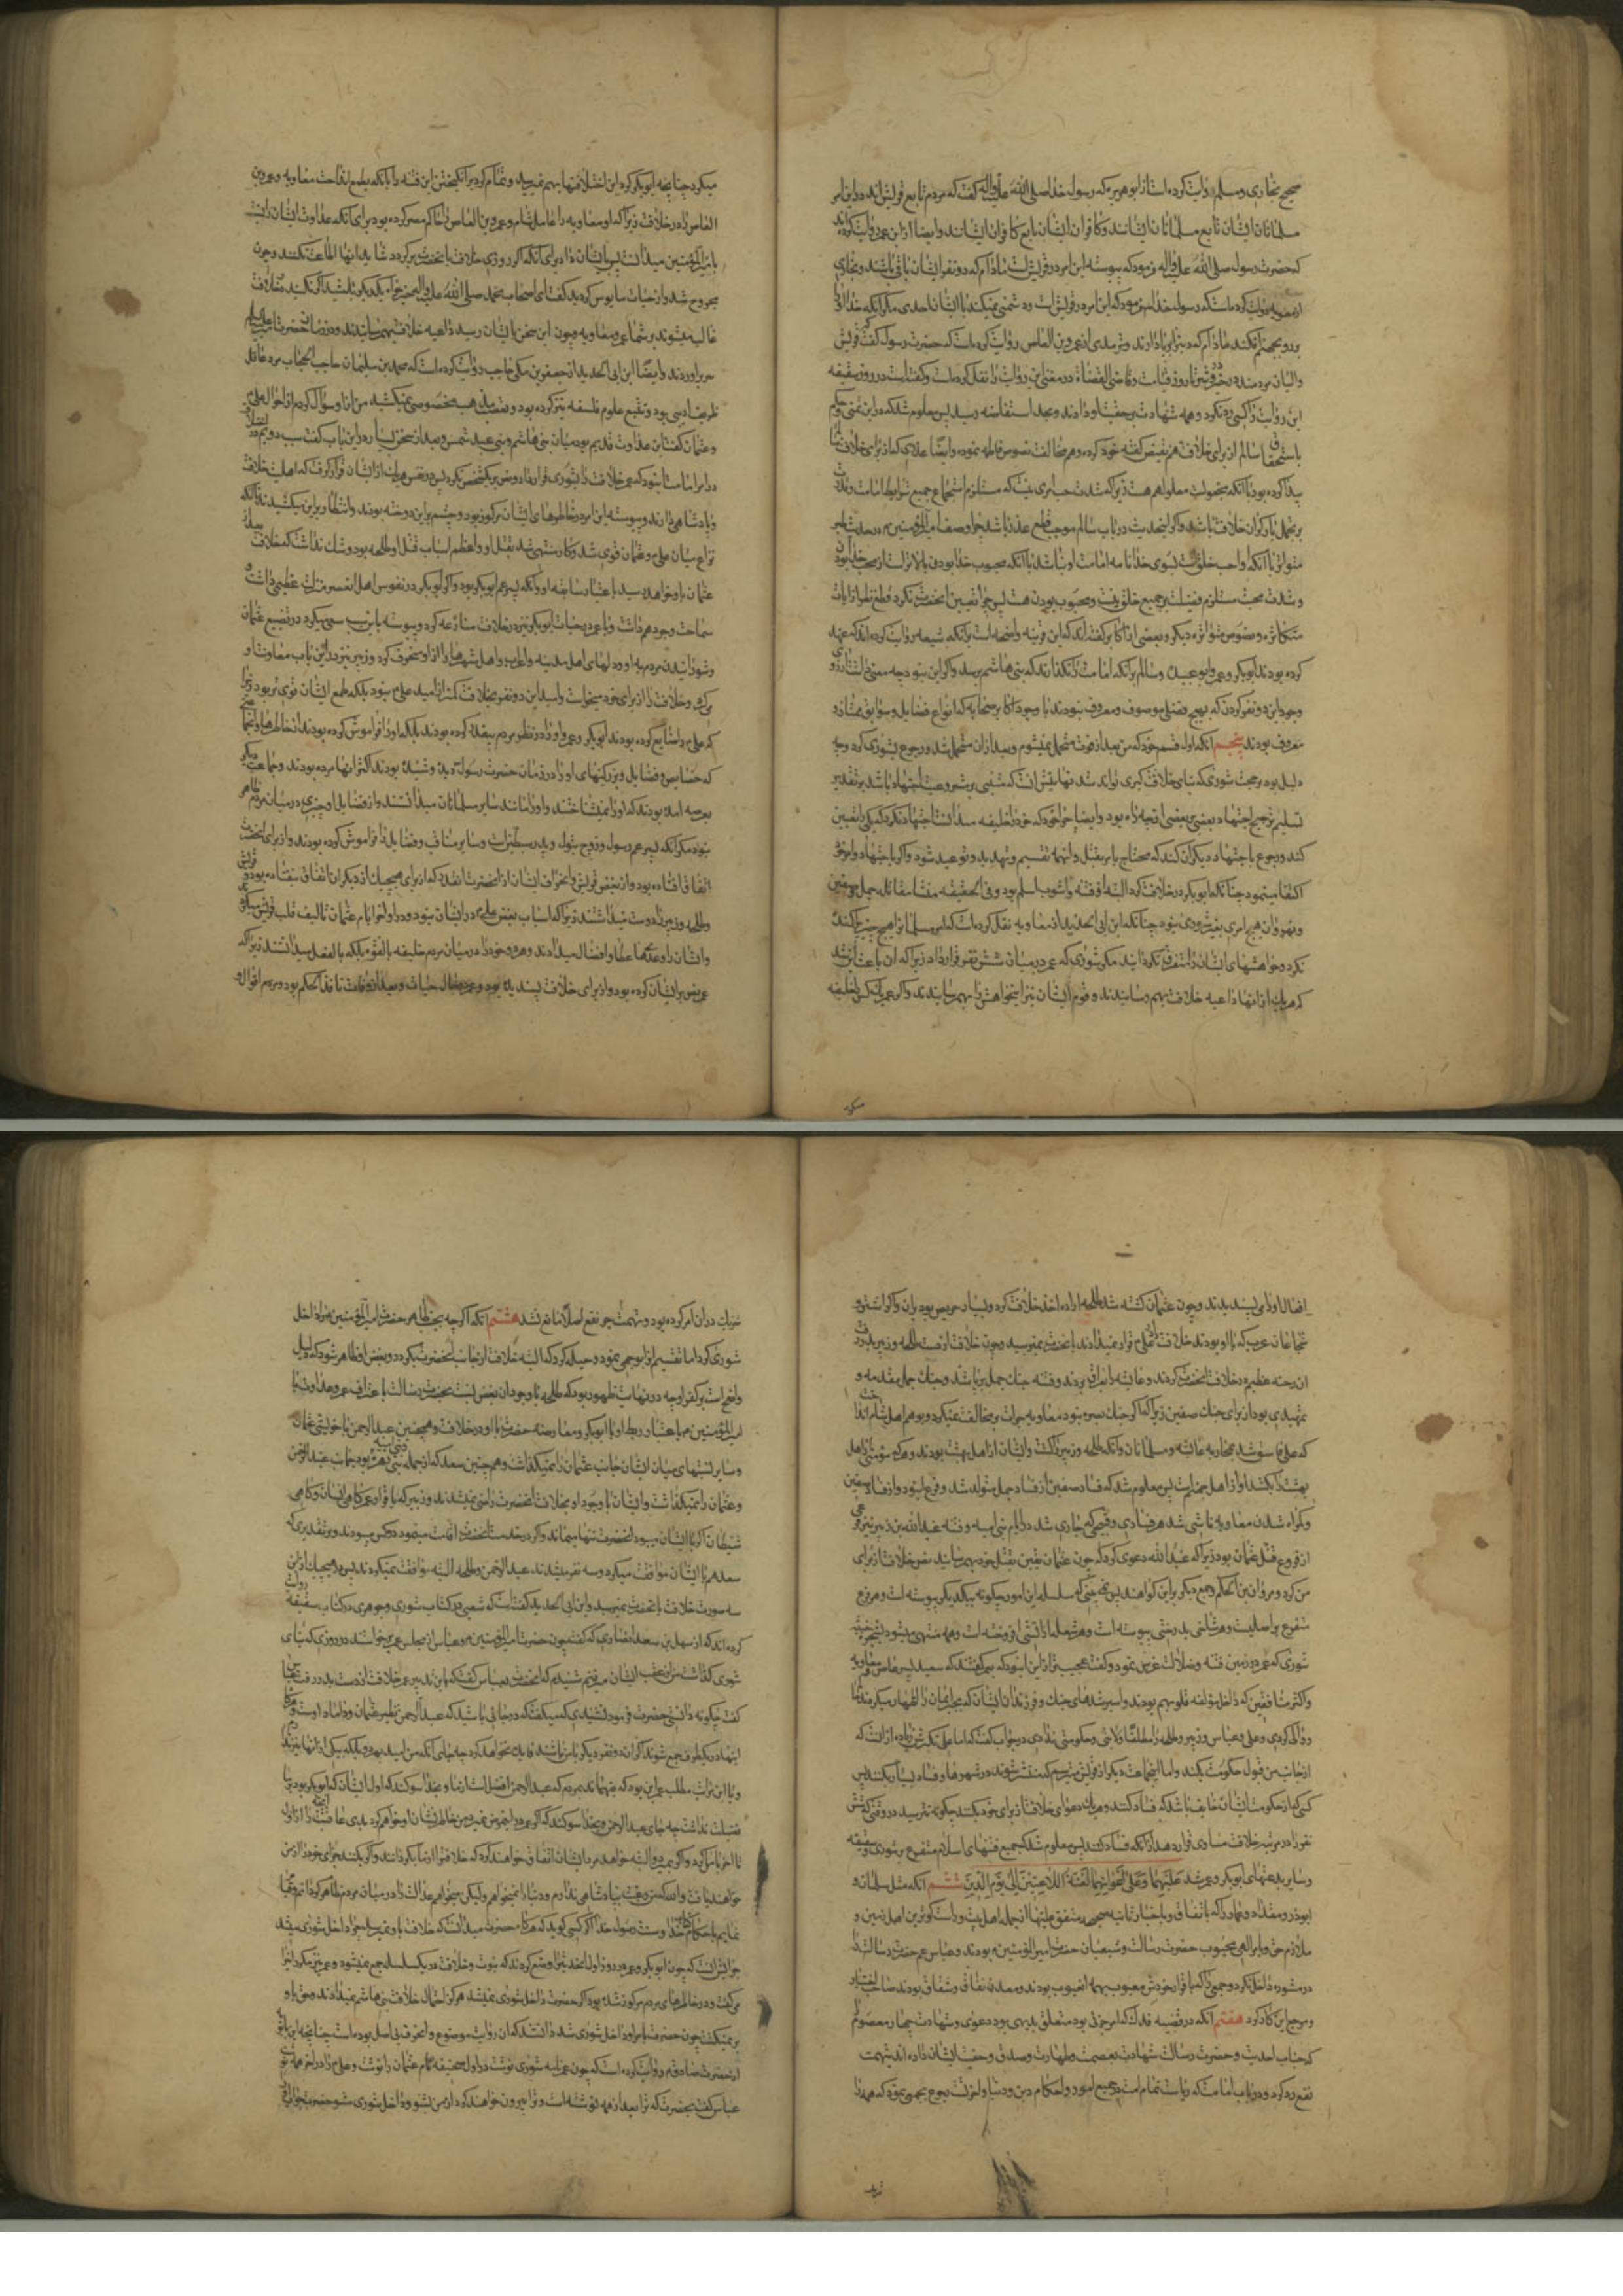 صحیح بخاری و مسلم روایت کرده است از ابو هریره که رسول خدا صلی الله علیه و آله گفت که مردم تابع قریش اند در این امر
مسلمانان ایشان تابع مسلمانان ایشانند و کافران ایشان تابع کافران ایشانند و ایضا از ابن عمر روایت کرده اند
که حضرت رسول صلی الله علیه و آله فرمود که پیوسته این امر در قریش است مادام که دو نفر ایشان باقی باشند و بخاری
از معویه روایت کرده است که رسول خدا فرمود که این امر در قریش است و دشمنی نمیکند با ایشان احدی مگر آنکه خدا او را
بر رو بجهنم افکند مادام که دین را برپا دارند و ترمدی از عمرو بن العاص روایت کرده است که حضرت رسول گفت که قریش
والیان مردمند در خیر و شر تا روز قیامت و قاضی القضاة در مغنی این روایت را نقل کرده است و گفته است در روز سقیفه
این روایت را کسی رد نکرد و همه شهادت بر حقیت او دادند و بحد استفاضه رسید پس معلوم شد که در این تمنی و حکم
باستحقاق سالم از برای خلافت هم نقیض گفته خود کرده و هم مخالفت نصوص فاطمه نموده و ایضا علتی که از برای خلافت
پیدا کرده بود با آنکه مجعولیت معلوم هست زیرا که شدت حب امری نیست که مستلزم اجتماع جمیع شرایط امامت و قدرت
بر تحمل بار گران خلافت باشد و اگر این حدیث در باب سالم موجب قطع عذر باشد چرا وصف امیر المؤمنین م در حدیث طیر
متواتر با آنکه او احب خلق است بسوی خدا نامه امامت او نباشد با آنکه محبوب خدا بودن بالاتر است از محب خدا بودن
و شدت محبت مستلزم فضیلت بر جمیع خلق نیست و محبوب بودن هست پس چرا تعیین آنحضرت نکرد قطع نظر از آیات
متکاثره و نصوص متواتره دیگر و بعضی از اکابر گفته اند که این قرینه واضحه است بر آنکه شیعه روایت کرده اند که عهد
کرده بودند ابوبکر و عمر و ابو عبیده و سالم بر آنکه امامت را نگذارند که بنی هاشم برسد و اگر این نبود چه معنی داشت آرزوی
وجود این دو نفر کردن که بهیچ فضلی موصوف و معروف نبودند با وجود اکابر صحابه که بانواع فضایل و سوابق ممتاز و
معروف بودند پنجم آنکه اول قسم خورد که من بعد از فوت متحمل نمیشوم و بعد از آن متحمل شد و رجوع بشوری کرد و چه
دلیل بود بر صحت شوری که بنای خلافت کبری تواند شد نهایتش آنست که مبتنی بر مشروعیت اجتهاد باشد بر تقدیر
تسلیم ترجیح اجتهاد بعضی بر بعضی از چه راه بود و ایضا چرا خود که خود را خلیفه میدانست اجتهاد نکرد که یکی را تعیین
کند و رجوع باجتهاد دیگران کند که محتاج بامر بقتل و اینهمه تقسیم و تهدید و توعید شود و اگر باجتهاد و امر خود
اکتفا مینمود چنانکه ابوبکر در خلافت کرد البته از فتنه و آشوب اسلم بود و فی الحقیقه منشا مقاتله جمل و صفین
و نهروان هیچ امری بغیر شوری نبود چنانکه ابن ابی الحدید از معاویه نقل کرده است که امر مسلمانان را هیچ چیز پراکنده
نکرد و خواهشهای ایشان را متفرق نگردانید مگر شوری که عمر در میان شش نفر قرار داد زیرا که آن باعث این شد
که هر یک از آنها داعیه خلافت بهم رسانیدند و قوم ایشان نیز این خواهش را بهم رسانیدند و اگر عمر یک کس را خلیفه
میکرد
میکرد چنانچه ابوبکر کرد این اختلافها بهم نمیرسید و تمام کرد برانگیختن این فتنه را بآنکه بطمع انداخت معاویه و عمرو بن
العاص را در خلافت زیرا که او معاویه را عامل شام و عمرو بن العاص را حاکم مصر کرده بود برای آنکه عداوت ایشان را نسبت
بامیر المؤمنین میدانست پس ایشان را برای آنکه اگر روزی خلافت بآنحضرت برگردد شاید اینها اطاعت نکنند و چون
مجروح شد و از حیات مایوس گردید گفت ای اصحاب محمد صلی الله علیه و آله خیر خواه یکدیگر باشید اگر نکنید بر خلافت
غالب میشوند بر شما عمرو و معاویه و چون این سخن بایشان رسید داعیه خلافت بهم رسانیدند و در زمان حضرت امیر علیه السلام
سر برآوردند و ایضا ابن ابی الحدید از جعفر بن مکی حاجب روایت کرده است که محمد بن سلیمان حاجب الحجاب مرد عاقل
ظریف ادیبی بود و تتبع علوم فلسفه نیز کرده بود و تعصب مذهب مخصوصی نمیکشید من از او سؤال کردم از احوال علی
و عثمان گفت این عداوت قدیم بود میان بنی هاشم و بنی عبد شمس و بعد از سخن بسیار در این باب گفت سبب دویم اختلاف
در امر امامت این بود که عمر خلافت را بشوری قرار داد و نص بر یک شخص نکرد پس در نفس هر یک از ایشان قرار گرفت که اهلیت خلافت
و پادشاهی دارند و پیوسته این امر در خاطرهای ایشان مرکوز بود و چشم بر این دوخته بودند و انتظار بر این میکشیدند تا آنکه
نزاع میان علی و عثمان قوی شد و کار منتهی شد بقتل او و اعظم اسباب قتل او طلحه بود و شک نداشت که خلافت بعد از
عثمان باو خواهد رسید باعتبار سابقه او و آنکه پسر عم ابوبکر بود و اگر ابوبکر در نفوس اهل آن عصر منزلت عظیمی داشت و
سماحت وجود هم داشت و با عمر در حیات ابوبکر نیز در خلافت منازعه کرد و پیوسته باین سبب سعی میکرد در تضییع عثمان
و شورانیدن مردم بر او و دلهای اهل مدینه و اعراب و اهل شهرها را از او منحرف کرد و زبیر نیز در این باب معاونت او
میکرد و خلافت را از برای خود میخواست و امید این دو نفر بخلافت کمتر از امید علی نبود بلکه طمع ایشان قوی تر بود زیرا
که علی را ضایع کرده بودند ابوبکر و عمر و او را در نظر مردم بیقدر کرده بودند بلکه او را فراموش کرده بودند از خاطرها و جمعی
که خصایص و فضایل و بزرگیهای او را در زمان حضرت رسول دیده و شنیده بودند اکثر آنها مرده بودند و جماعت دیگر
بعرصه آمده بودند که او را نمیشناختند و او را مانند سایر مسلمانان میدانستند و از فضایل او چیزی در میان مردم ظاهر
نبود مگر آنکه پسر عم رسول و زوج بتول و پدر سبطین است و سایر مناقب و فضایل را فراموش کرده بودند و از برای آنحضرت
اتفاق افتاده بود و از بغض قریش و انحراف ایشان از آنحضرت آنقدر که از برای هیچیک از دیگران اتفاق نیفتاده بود و قریش
طلحه و زبیر را دوست میداشتند زیرا که اسباب بغض علی در ایشان نبود و در اواخر ایام عثمان تالیف قلب قریش میکردند
و ایشان را وعده ها عطا و افضال میدادند و هر دو خود را در میان مردم خلیفه بالقوه بلکه بالفعل میدانستند زیرا که
عمر نص بر ایشان کرده بود و از برای خلافت پسندیده بود و عمر در حال حیات و بعد از وفات نافذ الحکم بود و مردم اقوال و
افعال او را می پسندیدند و چون عثمان کشته شد طلحه اراده اخذ خلافت کرد و بسیار حریص بود بر آن و اگر اشتر و
شجاعان عرب که با او بودند خلافت را بر علی قرار نمیدادند بآنحضرت نمیرسید و چون خلافت از دست طلحه و زبیر بدر رفت
آن رخنه عظیم در خلافت آنحضرت کردند و عایشه را بعراق بردند و فتنه جنگ جمل برپا شد و جنگ جمل مقدمه و
تمهیدی بود از برای جنگ صفین زیرا که اگر جنگ بصره نبود معاویه جرات بر مخالفت نمیکرد و بوهم اهل شام انداخت
که علی فاسق شد بمحاربه عایشه و مسلمانان و آنکه طلحه و زبیر را کشت و ایشان از اهل بهشت بودند و هر که مؤمنی از اهل
بهشت را بکشد او از اهل جهنم است پس معلوم شد که فساد صفین از فساد جمل متولد شد و فرع او بود و از فساد صفین
و گمراه شدن معاویه ناشی شد هر فسادی و قبیحی که جاری شد در ایام بنی امیه و فتنه عبد الله بن زبیر نیز فرعی
از فروع قتل عثمان بود زیرا که عبد الله دعوی کرد که چون عثمان یقین بقتل خود بهم رسانید نص خلافت از برای
من کرد و مروان بن الحکم و جمع دیگر بر این گواهند پس نمی بینی که سلسله این امور چگونه بیکدیگر پیوسته است و هر فرع
متفرع بر اصلیست و هر شاخی بدرختی پیوسته است و هر شعله از آتشی افروخته است و همه منتهی میشود بشجره خبیثه
شوری که عمر در زمین فتنه و ضلالت غرس نمود و گفت عجیب تر از این آن بود که بعمر گفتند که سعید پسر عاص و معاویه
و اکثر منافقین که داخل مؤلفه قلوبهم بودند و اسیر شدهای جنگ و فرزندان ایشان که بجبر ایمان را اظهار میکردند اینها
را والی کردی و علی و عباس و زبیر و طلحه را مطلقا ولایتی و حکومتی ندادی در جواب گفت که اما علی تکبرش زیاده از آنست که
از جانب من قبول حکومت بکند و اما اینجماعت دیگر از قریش میترسم که منتشر شوند در شهرها و فساد بسیار بکنند پس
کسی که از حکومت ایشان خایف باشد که فساد کنند و هر یک دعوای خلافت از برای خود بکنند چگونه نترسید در وقتی که شش
نفر را در مرتبه خلافت مساوی قرار دهد از آنکه فساد کنند پس معلوم شد که جمیع فتنهای اسلام متفرع بر شوری و سقیفه
و سایر بدعتهای ابوبکر و عمر شد علیهما و علی اخوانهما لعنة اللاعنین الی یوم الدین ششم آنکه مثل سلمان و
ابوذر و مقداد و عمار را که باتفاق و باخبار ثابته صحیحه متفق علیها از جمله اهلبیت و راست گوترین اهل زمین و
ملازم حق و بامر الهی محبوب حضرت رسالت و شیعیان حضرت امیر المؤمنین م بودند و عباس عم حضرت رسالت را
در مشوره داخل نکرد و جمعی را که باقرار خودش معیوب بهمه عیوب بودند و معدن نفاق و شقاق بودند صاحب اختیار
و مرجع این کار کرد هفتم آنکه در قضیه فدک که امر جزئی بود متعلق بدیهی بود دعوی و شهادت چهار معصوم
که جناب احدیت و حضرت رسالت شهادت بعصمت و طهارت و صدق و حقیت ایشان داده اند بتهمت
نفع رد کرد و در باب امامت که ریاست تمام امت در جمیع امور و احکام دین و دنیا و آخرت رجوع بجمعی نمود که همه را
شریک در آن امر کرده بود و تهمت جر نفع اصلا مانع نشد هشتم آنکه اگر چه بحسب ظاهر حضرت امیر المؤمنین م را داخل
شوری کرد اما تقسیم را بوجهی نمود و حیله کرد که البته خلافت از جانب آنحضرت بگردد و بعض او ظاهر شود که دلیل
واضح است بر کفر او چه در نهایت ظهور بود که طلحه با وجود آن بغض نسبت بحضرت رسالت باعتراف عمر و عداوت با
امیر المؤمنین م باعتبار ربط او با ابوبکر و معارضه حضرت با او در خلافت و همچنین عبد الرحمن با خویشی عثمان
و سایر نسبتهای میان ایشان جانب عثمان را نمیگذاشت و همچنین سعد که از جمله بنی زهره بود جانب عبد الرحمن
و عثمان را نمیگذاشت و ایشان با وجود او بخلافت آنحضرت راضی نمیشدند و زبیر که باقرار عمر گاهی انسان و گاهی
شیطان اگر با ایشان میبود آنحضرت تنها میماند و اگر در خدمت آنحضرت اقامت مینمود دو کس میبودند و بر تقدیری که
سعد هم با ایشان موافقت میکرد و سه نفر میشدند عبد الرحمن و طلحه البته موافقت نمیکردند پس در هیچیک از این
سه صورت خلافت بآنحضرت نمیرسید و ابن ابی الحدید گفته است که شعبی در کتاب شوری و جوهری در کتاب سقیفه روایت
کرده اند که از سهل بن سعد انصاری که گفت چون حضرت امیر المؤمنین م و عباس از مجلس عمر برخواستند در روزی که بنای
شوری گذاشت من از عقب ایشان میرفتم شنیدم که آنحضرت بعباس گفت که باین تدبیر عمر خلافت از دست بدر رفت عباس
گفت چگونه دانستی حضرت فرمود نشنیدی که میگفت که در جانبی باشید که عبد الرحمن نظیر عثمان و داماد اوست و هرگاه
اینها در یکطرف جمع شوند اگر آن دو نفر دیگر با من باشند فایده نخواهد کرد چه جای آنکه من امید بهر دو بلکه بیکی از آنها ندارم
و با این مراتب مطلب عمر این بود که بفهماند بمردم که عبد الرحمن افضل است از ما و بخدا سوگند که اول ایشان که ابوبکر بود بر ما
فضیلت نداشت چه جای عبد الرحمن و بخدا سوگند که اگر عمر در این مرض نمیرد بخاطر ایشان او خواهم آورد بدی عاقبت آنچه از اول
تا آخر با ما کرد و اگر بمیرد و البته خواهد مرد ایشان اتفاق خواهند کرد که خلافت را از ما بگردانند و اگر بکنند جزای خود را از من
خواهند یافت و الله که من رغبت بپادشاهی ندارم و دنیا را نمیخواهم و لیکن میخواهم عدالت را در میان مردم ظاهر گردانم و قیام
نمایم باحکام کتاب خدا و سنت رسول خدا اگر کسی گوید که هرگاه حضرت میدانست که خلافت باو نمیرسد چرا داخل شوری میشد
جوابش آنست که چون ابوبکر و عمر در روز اول این حدیث افترا و وضع کردند که نبوت و خلافت در یک سلسله جمع نمیشود و عمر نیز مکرر این را
میگفت و در خاطرهای مردم مرکوز شده بود اگر حضرت داخل شوری نمیشد هرگز احتمال خلافت بنی هاشم نمیدادند و حق باو
بر نمیگشت چون حضرت بامر او داخل شوری شد دانستند که آن روایت موضوع و افترای بی اصل بوده است چنانچه ابن بابویه
از حضرت صادق م روایت کرده است که چون عمر نامه شوری نوشت در اول صحیفه نام عثمان را نوشت و علی را در آخر همه نوشت
عباس گفت بحضرت که ترا بعد از همه نوشته است و ترا بیرون خواهند کرد از من بشنو و داخل شوری مشو حضرت جواب